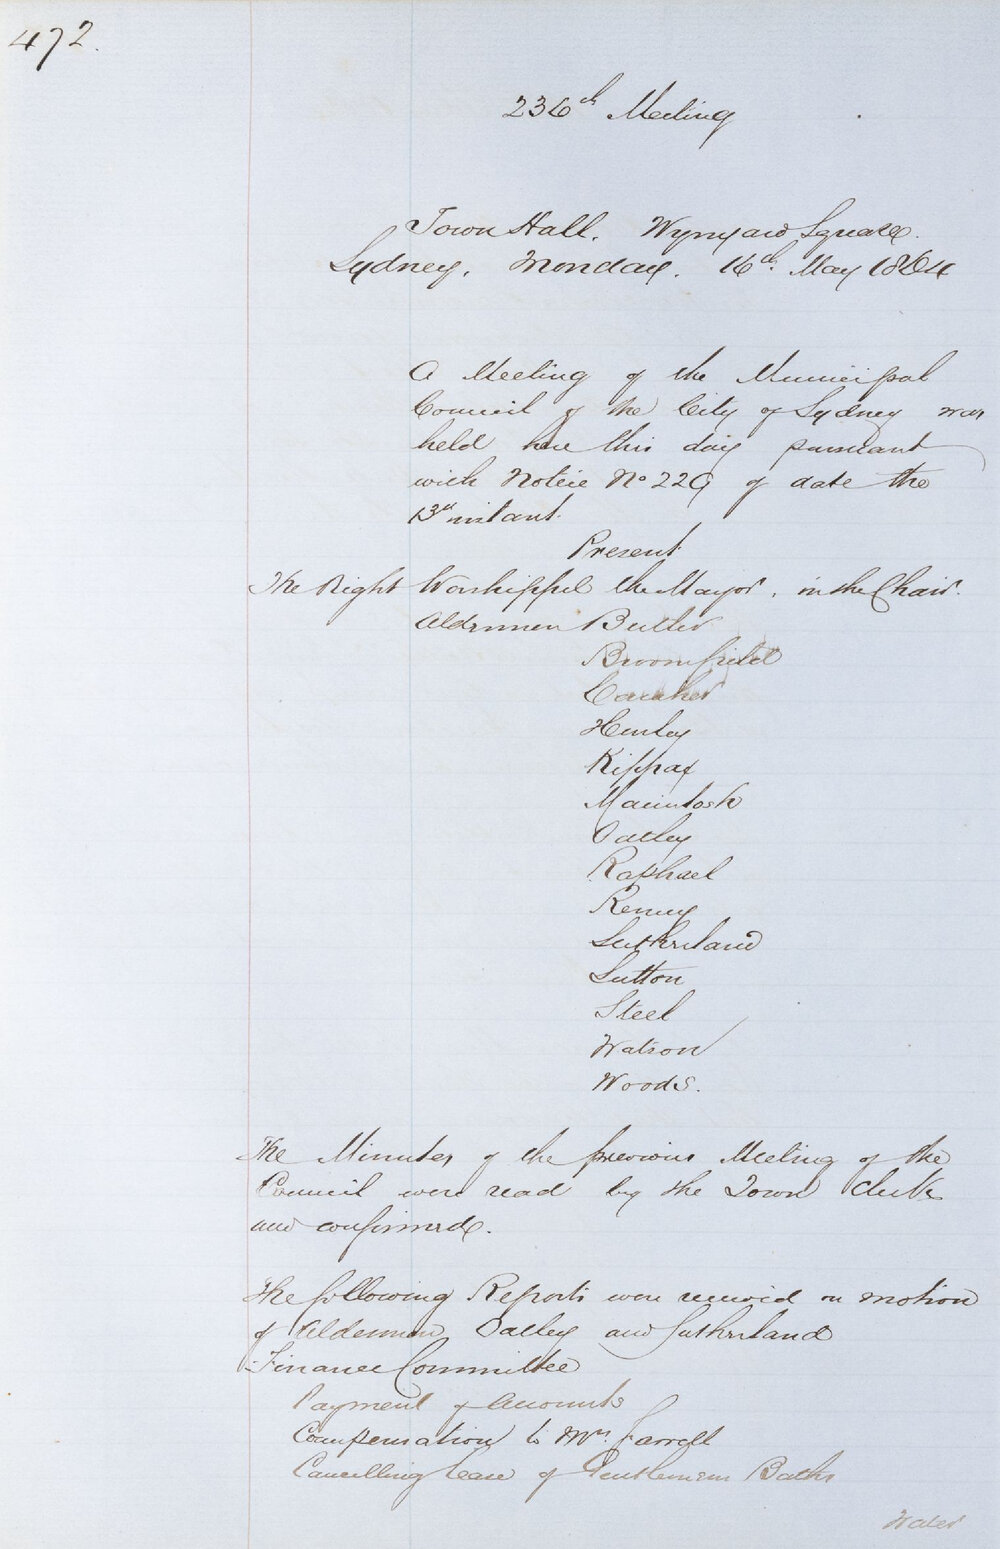 472.
236th Meeting
Town Hall. Wynyard Square.
Sydney. Monday. 16th May 1864
A Meeting of the Municipal
Council of the City of Sydney was
held here this day pursuant
with Notice No 229 of date the
13th instant.
Present
The Right Worshipful the Mayor, in the Chair.
Aldermen Butler
Broomfield
Caraher
Henley
Kippax
Macintosh
Oatley
Raphael
Renny
Sutherland
Sutton
Steel
Watson
Woods.
The Minutes of the previous Meeting of the
Council were read by the Town Clerk
and confirmed.
The following Reports were received on motion
of Aldermen Oatley and Sutherland
Finance Committee
Payment of Accounts
Compensation to Mrs. Farrell
Cancelling lease of Gentlemens Baths
Water